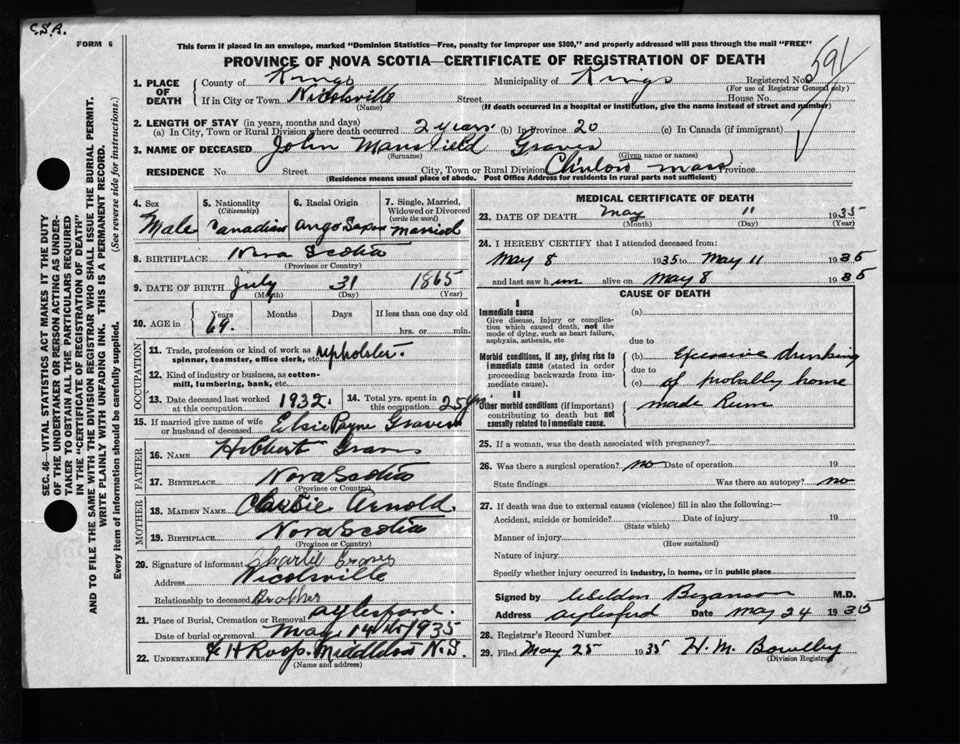 C.S.R.
FORM 6
This form if placed in an envelope, marked "Dominion Statistics—Free, penalty for improper use $300," and properly addressed will pass through the mail "FREE"
PROVINCE OF NOVA SCOTIA—CERTIFICATE OF REGISTRATION OF DEATH
1. PLACE OF DEATH
County of Kings Municipality of Kings Registered No. 591
(For use of Registrar General only)
If in City or Town Nicolsville Street House No.
(Name) (If death occurred in a hospital or institution, give the name instead of street and number)
2. LENGTH OF STAY (in years, months and days)
(a) In City, Town or Rural Division where death occurred 2 years (b) In Province 20 (c) In Canada (if immigrant)
3. NAME OF DECEASED John Mansfield Graves
(Surname) (Given name or names)
RESIDENCE No. Street City, Town or Rural Division Clinton Mass Province
(Residence means usual place of abode. Post Office Address for residents in rural parts not sufficient)
4. Sex Male
5. Nationality (Citizenship) Canadian
6. Racial Origin Ango Saxon
7. Single, Married, Widowed or Divorced (write the word) Married
8. BIRTHPLACE Nova Scotia
(Province or Country)
9. DATE OF BIRTH July 31 1865
(Month) (Day) (Year)
10. AGE in Years Months Days If less than one day old
69. hrs. or min.
OCCUPATION
11. Trade, profession or kind of work as spinner, teamster, office clerk, etc. upholster.
12. Kind of industry or business, as cotton-mill, lumbering, bank, etc.
13. Date deceased last worked at this occupation 1932.
14. Total yrs. spent in this occupation 25 yrs.
15. If married give name of wife or husband of deceased Elsie Payne Graves
FATHER
16. NAME Hibbert Graves
17. BIRTHPLACE Nova Scotia
(Province or Country)
MOTHER
18. MAIDEN NAME Arnold.
19. BIRTHPLACE Nova Scotia
(Province or Country)
20. Signature of informant Charlie Graves
Address Nicolsville
Relationship to deceased Brother
21. Place of Burial, Cremation or Removal Aylesford.
Date of burial or removal May 14th 1935
22. UNDERTAKER H Roop. Middleton N.S.
(Name and address)
MEDICAL CERTIFICATE OF DEATH
23. DATE OF DEATH May 11 1935
(Month) (Day) (Year)
24. I HEREBY CERTIFY that I attended deceased from:
May 8 1935 to May 11 1935
and last saw him alive on May 8 1935
CAUSE OF DEATH
I
Immediate cause
Give disease, injury or complication which caused death, not the mode of dying, such as heart failure, asphyxia, asthenia, etc.
(a)
due to
Morbid conditions, if any, giving rise to immediate cause (stated in order proceeding backwards from immediate cause).
(b) Excessive drinking
due to
(c) of probably home
II
Other morbid conditions (if important) contributing to death but not causally related to immediate cause.
made Rum
25. If a woman, was the death associated with pregnancy?
26. Was there a surgical operation? no Date of operation 19
State findings Was there an autopsy? no
27. If death was due to external causes (violence) fill in also the following:—
Accident, suicide or homicide? Date of injury 19
(State which)
Manner of injury
(How sustained)
Nature of injury
Specify whether injury occurred in industry, in home, or in public place
Signed by Weldon Bezanson M.D.
Address Aylesford Date May 24 1935
28. Registrar's Record Number
29. Filed May 25 1935 H. M. Bowlby
(Division Registrar)
SEC. 46—VITAL STATISTICS ACT MAKES IT THE DUTY
OF THE UNDERTAKER OR PERSON ACTING AS UNDER-
TAKER TO OBTAIN ALL THE PARTICULARS REQUIRED
IN THE "CERTIFICATE OF REGISTRATION OF DEATH"
AND TO FILE THE SAME WITH THE DIVISION REGISTRAR WHO SHALL ISSUE THE BURIAL PERMIT.
WRITE PLAINLY WITH UNFADING INK. THIS IS A PERMANENT RECORD.
Every item of information should be carefully supplied. (See reverse side for instructions.)